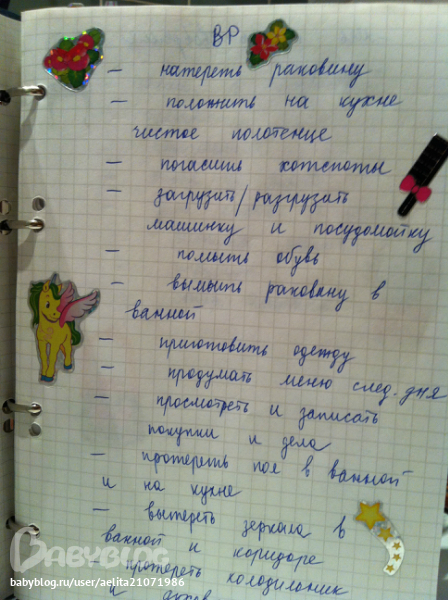 ВР
— натереть раковину
— положить на кухне
чистое полотенце
— погасить хотспоты
— загрузить/разгрузить
машинку и посудомойку
— помыть обувь
— вымыть раковину в
ванной
— приготовить одежду
— продумать меню след. дня
— просмотреть и записать
покупки и дела
— протереть пол в ванной
и на кухне
— вытереть зеркала в
ванной и коридоре
— протереть холодильник
и
BABYBLOG
babyblog.ru/user/aelita21071986